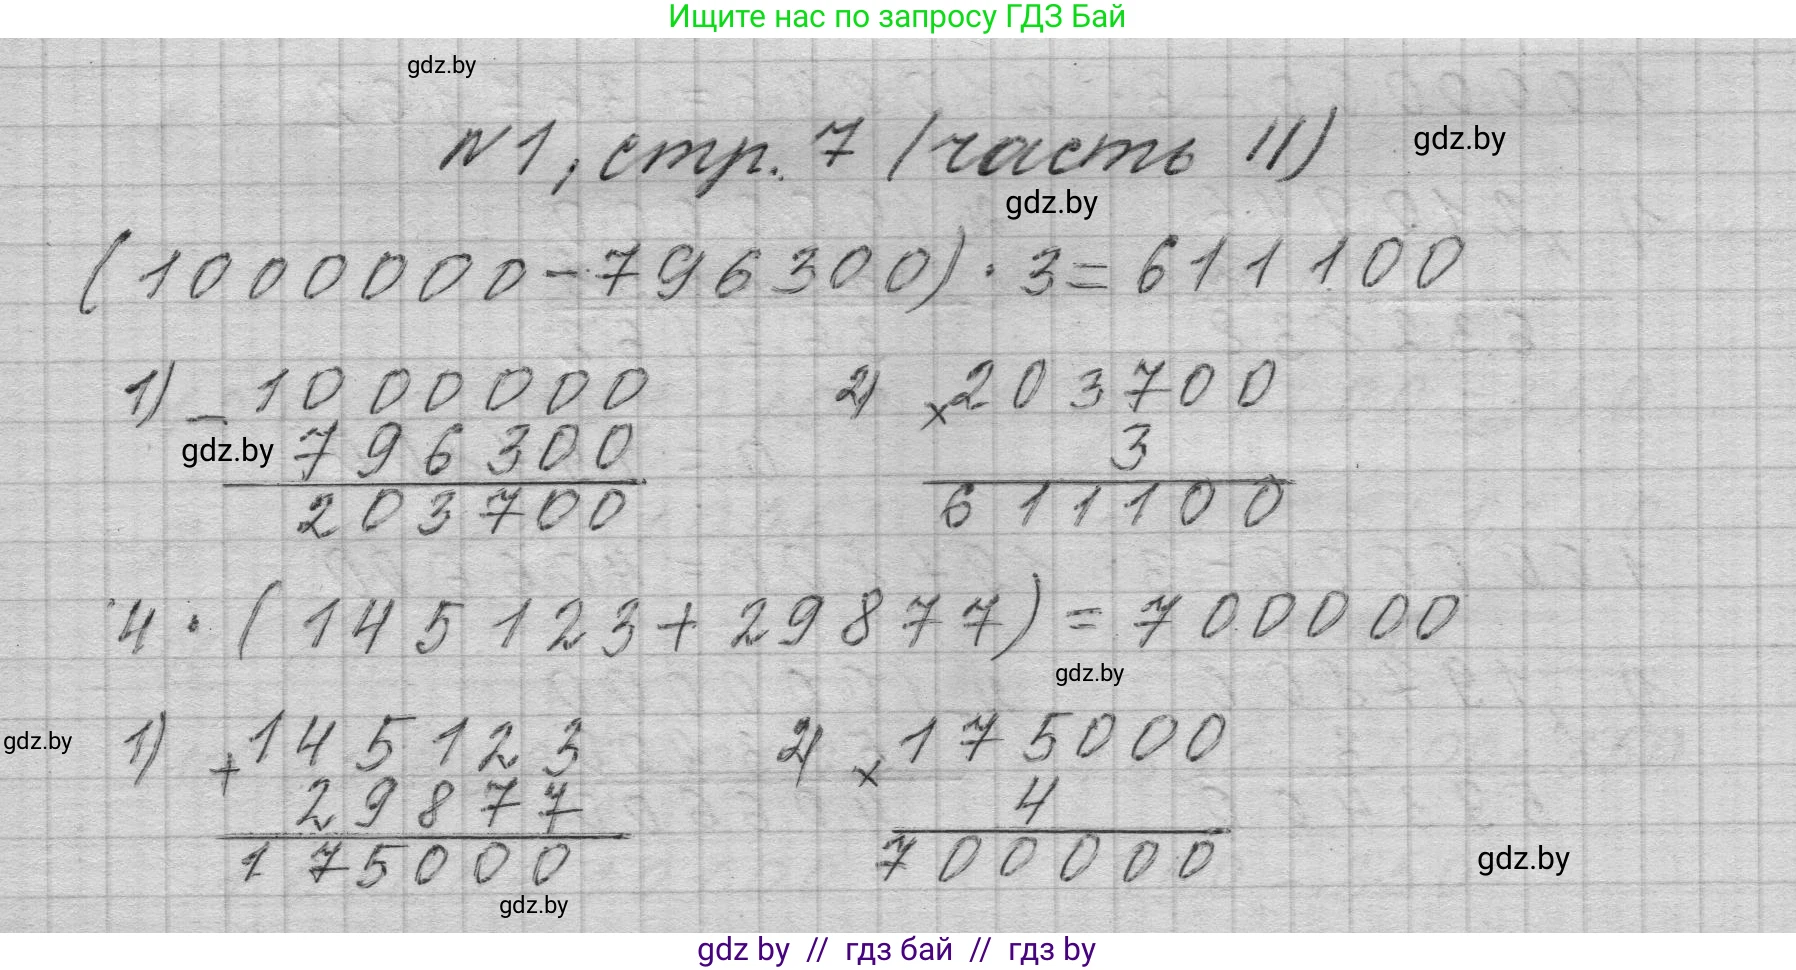 Ищите нас по запросу ГДЗ Бай
gdz.by
№1, стр. 7 (часть II)
gdz.by
gdz.by
(1000000-796300)·3=611100
1) -1000000 2) ×203700
gdz.by 796300 3
203700 611100
4·(145123+29877)=700000
gdz.by
gdz.by 1) +145123 2) ×175000
29877 4
175000 700000
gdz.by
gdz.by
gdz by // гдз бай // гдз by